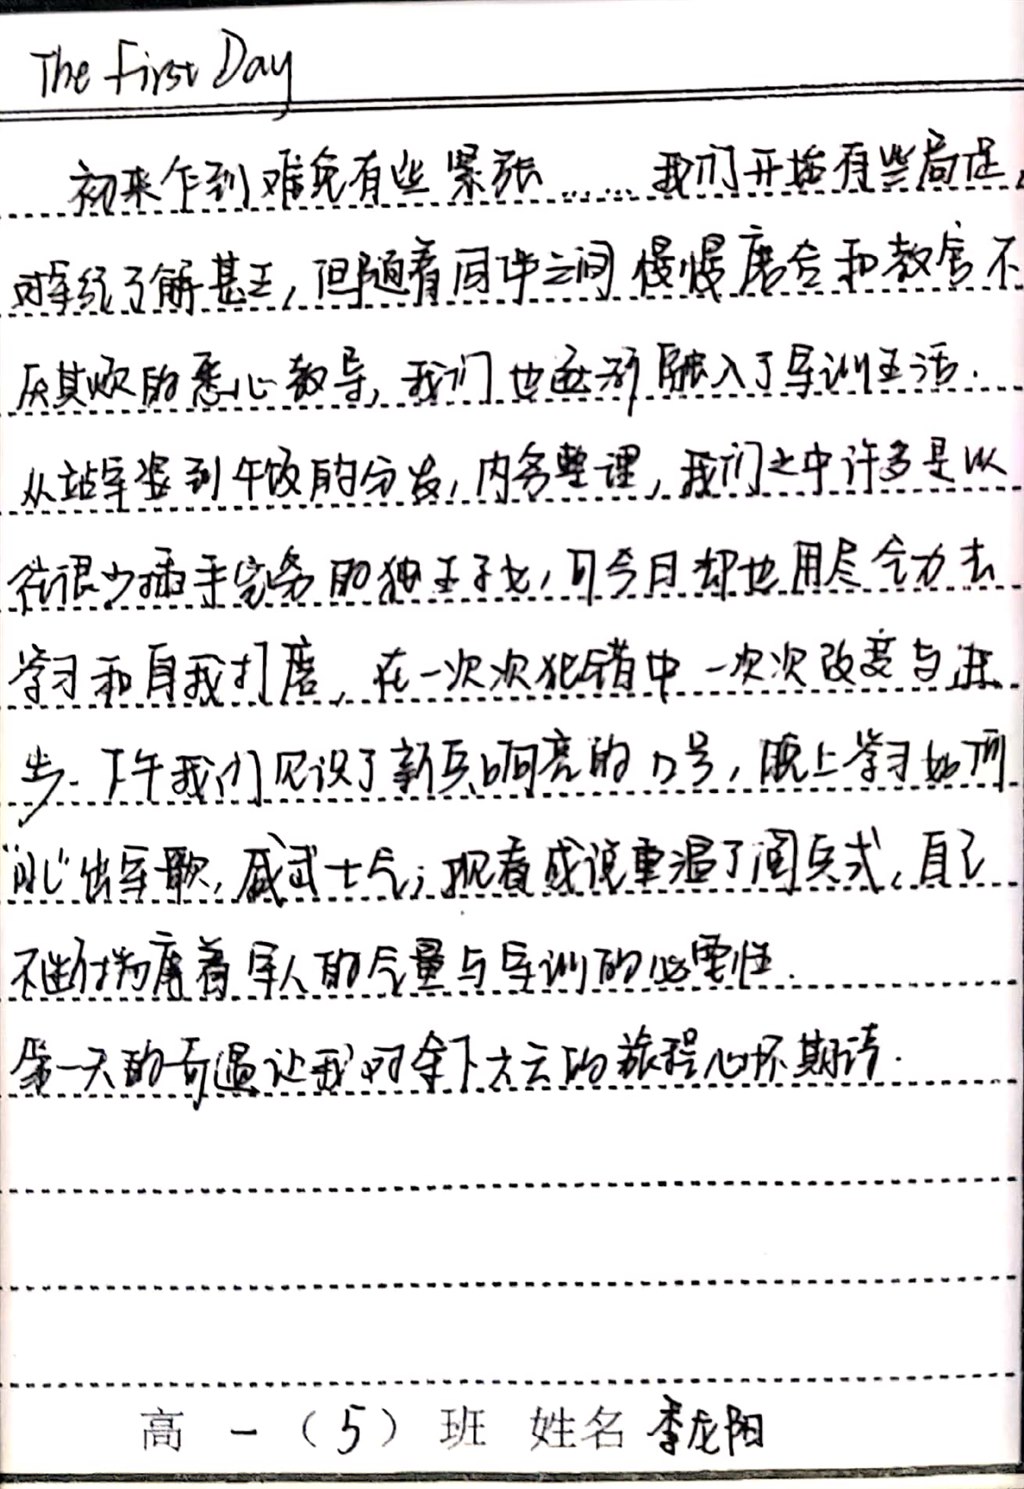 The First Day
初来乍到难免有些紧张……我们开始有些局促，
对军纪了解甚玉，但随着同伴之间慢慢磨合和教官不
厌其烦的悉心教导，我们也逐渐融入了军训生活.
从站军姿到午饭的分发，内务整理，我们之中许多是以
往很少插手家务的独生子女，可今日却也用尽全力去
学习和自我打磨，在一次次犯错中一次次改变与进
步.下午我们见识了新兵响亮的口号，晚上学习如何
出军歌，武士气；观看或说重温了阅兵式，自己
不着军人的气量与军训的必要性.
第一天的奇遇让我对余下六天的旅程心怀期待.
高一（5）班 姓名 李龙阳